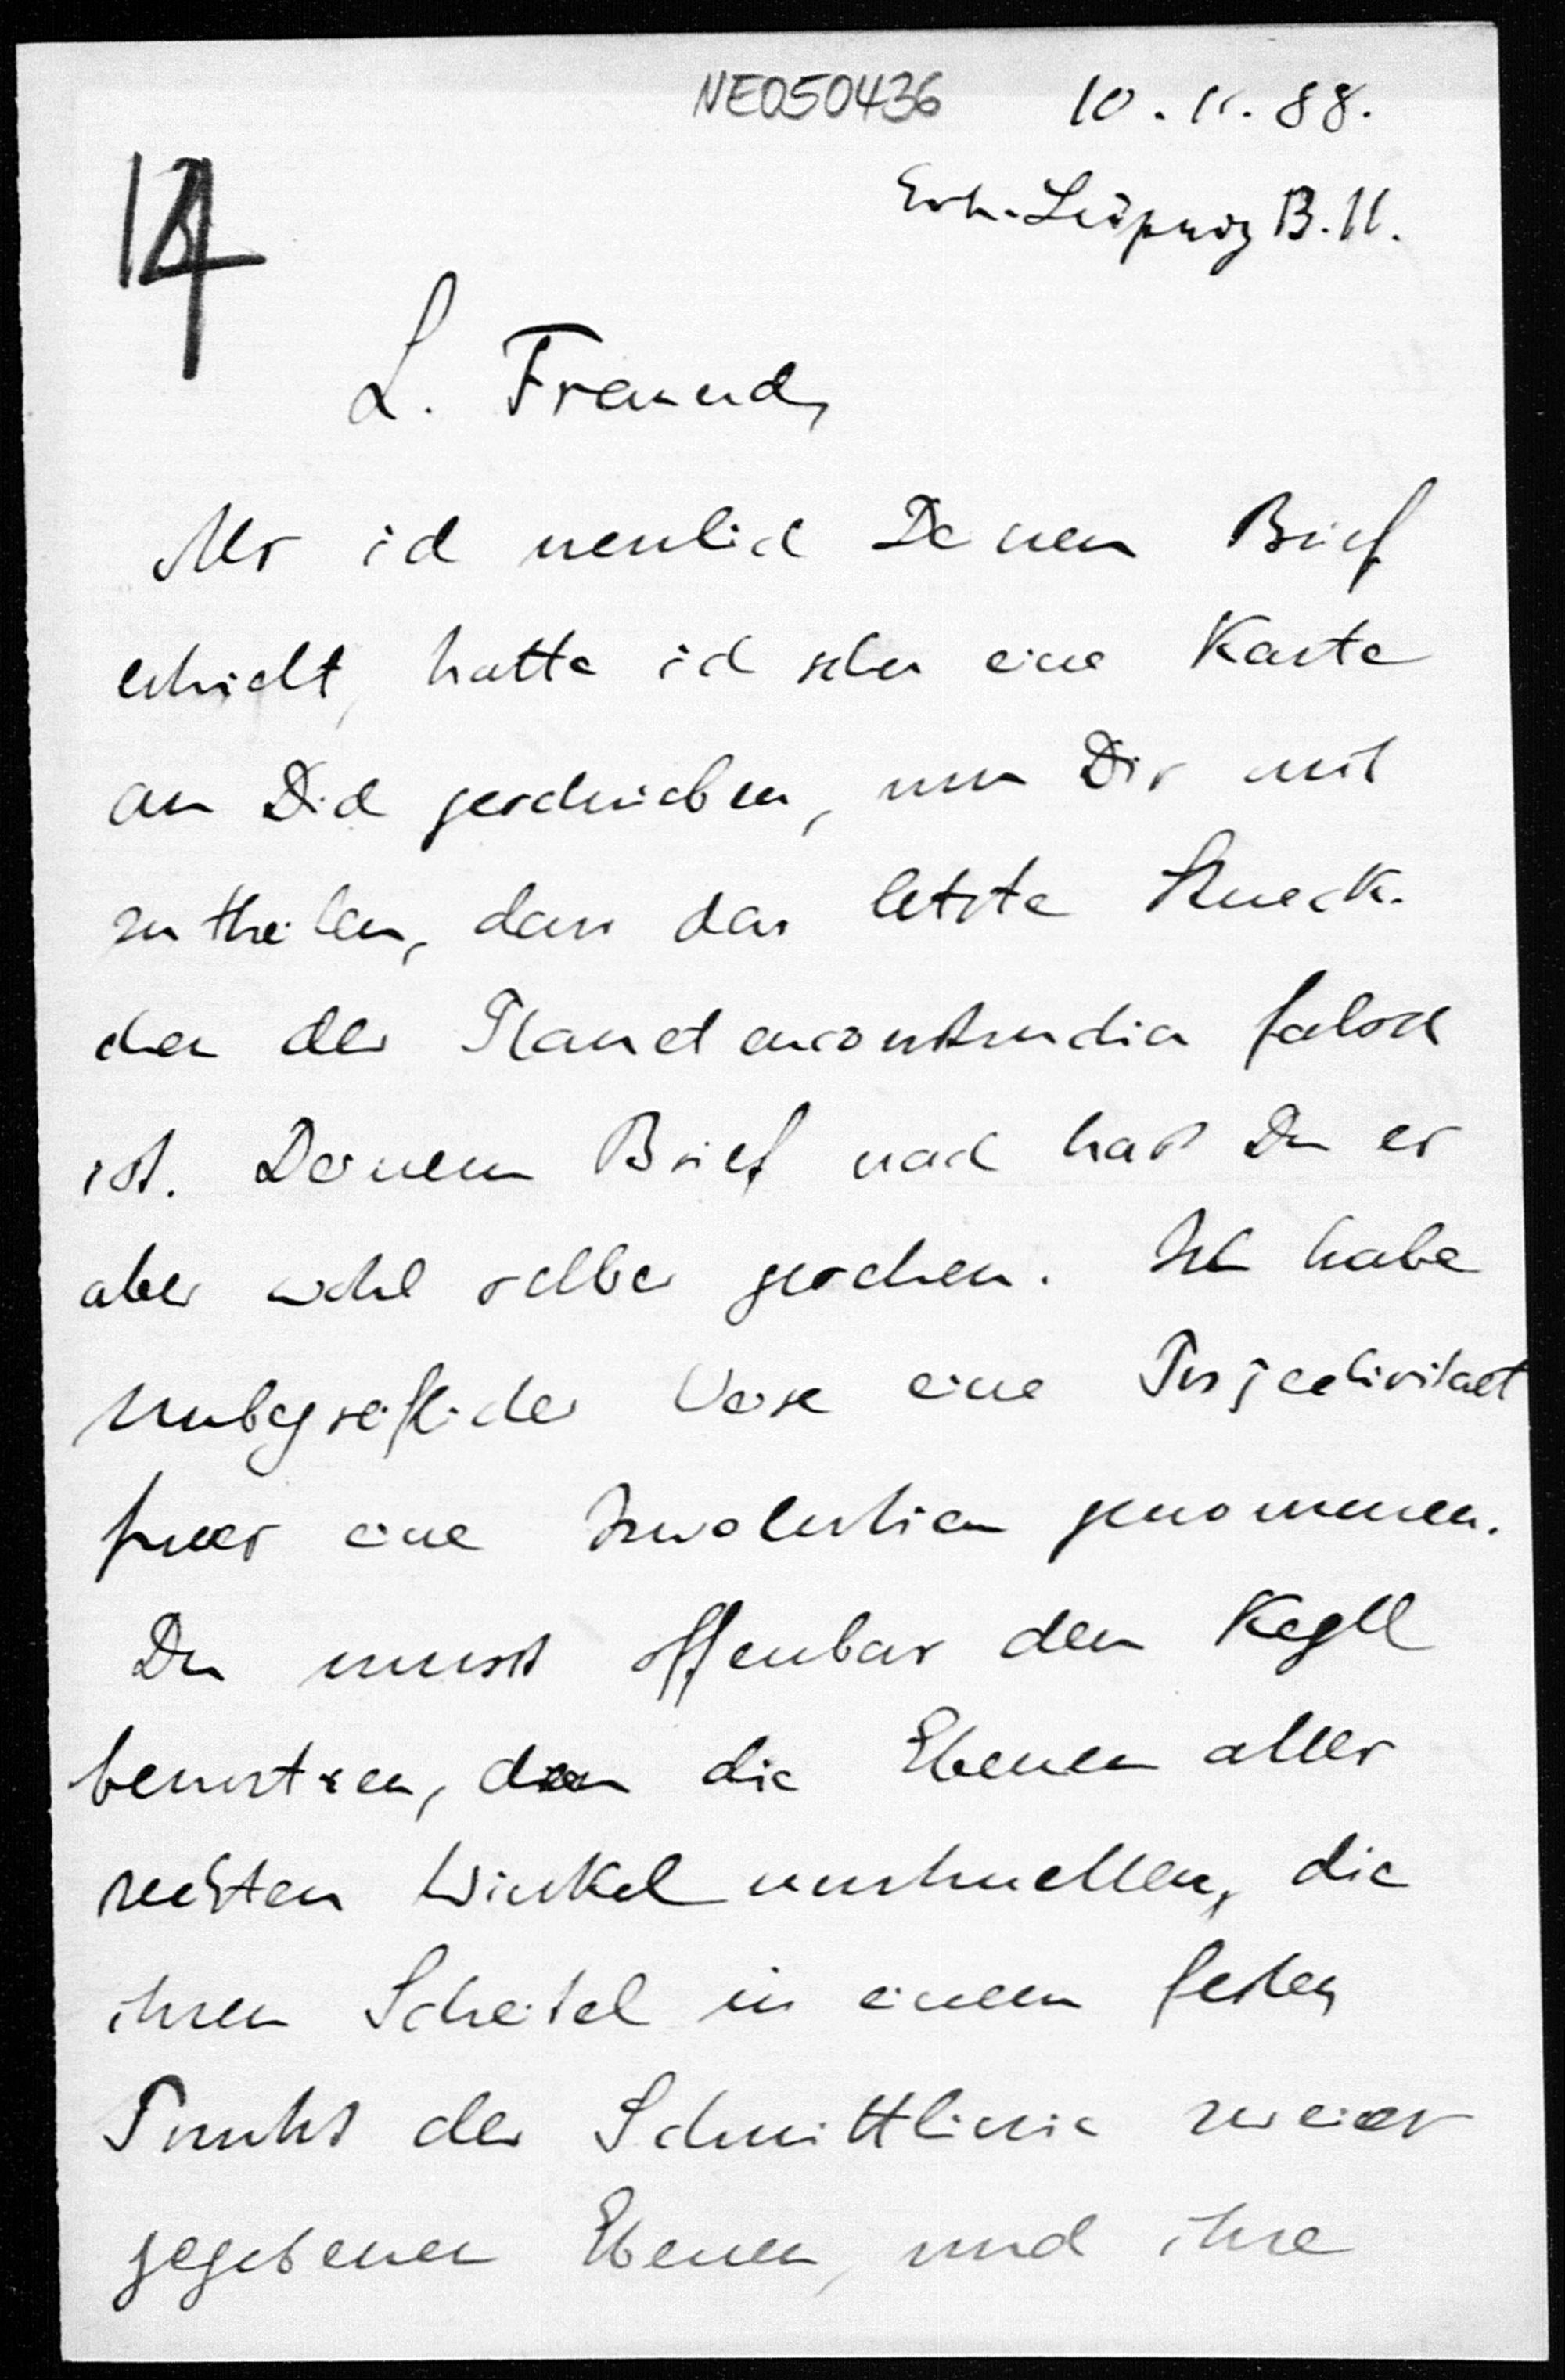 NE050436 10.11.88.
Erh. Leipzig B.11.
14
L. Freund,
Als ich neulich Deinen Brief
erhielt, hatte ich schon eine Karte
an Dich geschrieben, um Dir mit
zutheilen, dass das letzte Stueck.
chen der Planetenconstruction falsch
ist. Deinem Brief nach hast Du es
aber wohl selber gesehen. Ich habe
unbegreiflicher Weise eine Projectivitaet
fuer eine Involution genommen.
Du musst offenbar den Kegel
benutzen, den die Ebenen aller
rechten Winkel umhuellen, die
ihren Scheitel in einem festen
Punkt der Schnittlinie zweier
gegebener Ebenen, und ihre